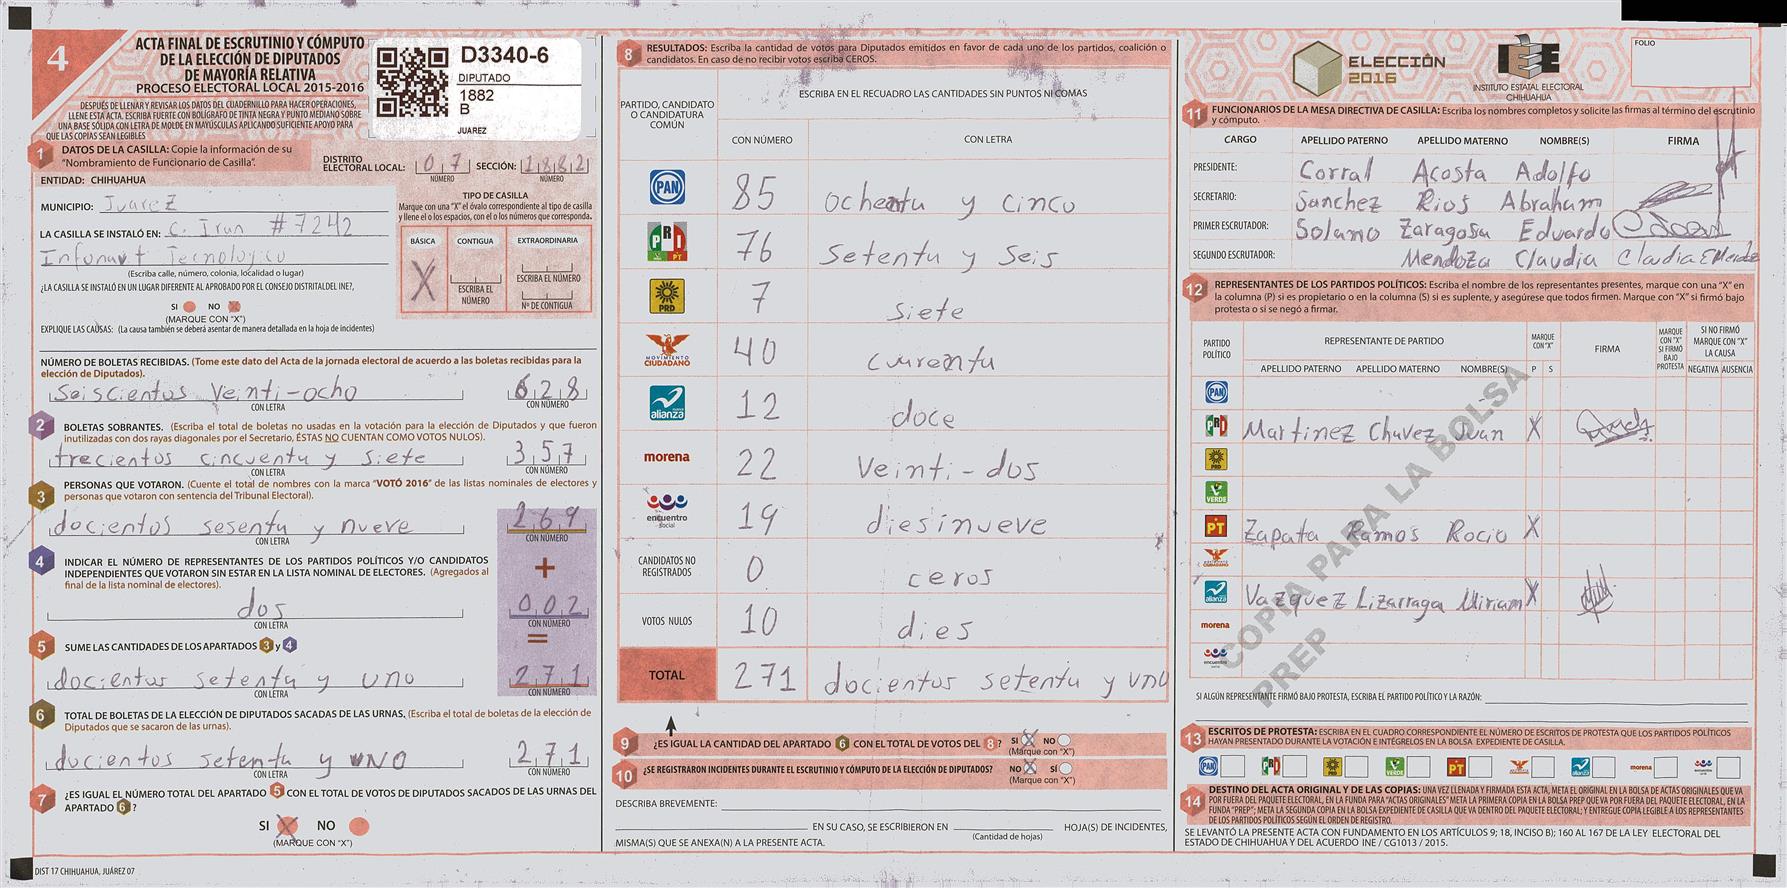 4
ACTA FINAL DE ESCRUTINIO Y CÓMPUTO
DE LA ELECCIÓN DE DIPUTADOS
DE MAYORÍA RELATIVA
PROCESO ELECTORAL LOCAL 2015-2016
DESPUÉS DE LLENAR Y REVISAR LOS DATOS DEL CUADERNILLO PARA HACER OPERACIONES,
LLENE ESTA ACTA. ESCRIBA FUERTE CON BOLÍGRAFO DE TINTA NEGRA Y PUNTO MEDIANO SOBRE
UNA BASE SÓLIDA CON LETRA DE MOLDE EN MAYÚSCULAS APLICANDO SUFICIENTE APOYO PARA
QUE LAS COPIAS SEAN LEGIBLES
D3340-6
DIPUTADO
1882
B
JUAREZ
1 DATOS DE LA CASILLA: Copie la información de su
"Nombramiento de Funcionario de Casilla".
DISTRITO
ELECTORAL LOCAL: 07 SECCIÓN: 1882
NÚMERO NÚMERO
ENTIDAD: CHIHUAHUA
MUNICIPIO: Juarez
LA CASILLA SE INSTALÓ EN: C. Irun #7242
Infonavit Tecnologico
(Escriba calle, número, colonia, localidad o lugar)
¿LA CASILLA SE INSTALÓ EN UN LUGAR DIFERENTE AL APROBADO POR EL CONSEJO DISTRITAL DEL INE?,
SI NO X
(MARQUE CON "X")
EXPLIQUE LAS CAUSAS: (La causa también se deberá asentar de manera detallada en la hoja de incidentes)
TIPO DE CASILLA
Marque con una "X" el óvalo correspondiente al tipo de casilla
y llene el o los espacios, con el o los números que corresponda.
BÁSICA CONTIGUA EXTRAORDINARIA
X ESCRIBA EL NÚMERO ESCRIBA EL NÚMERO
Nº DE CONTIGUA
NÚMERO DE BOLETAS RECIBIDAS. (Tome este dato del Acta de la jornada electoral de acuerdo a las boletas recibidas para la
elección de Diputados).
Seiscientos Veinti-ocho 628
CON LETRA CON NÚMERO
2 BOLETAS SOBRANTES. (Escriba el total de boletas no usadas en la votación para la elección de Diputados y que fueron
inutilizadas con dos rayas diagonales por el Secretario, ÉSTAS NO CUENTAN COMO VOTOS NULOS).
trecientos cincuenta y Siete 357
CON LETRA CON NÚMERO
3 PERSONAS QUE VOTARON. (Cuente el total de nombres con la marca "VOTÓ 2016" de las listas nominales de electores y
personas que votaron con sentencia del Tribunal Electoral).
docientos sesenta y nueve 269
CON LETRA CON NÚMERO
4 INDICAR EL NÚMERO DE REPRESENTANTES DE LOS PARTIDOS POLÍTICOS Y/O CANDIDATOS
INDEPENDIENTES QUE VOTARON SIN ESTAR EN LA LISTA NOMINAL DE ELECTORES. (Agregados al
final de la lista nominal de electores).
+
dos 002
CON LETRA CON NÚMERO
=
5 SUME LAS CANTIDADES DE LOS APARTADOS 3 y 4
docientos setenta y uno 271
CON LETRA CON NÚMERO
6 TOTAL DE BOLETAS DE LA ELECCIÓN DE DIPUTADOS SACADAS DE LAS URNAS. (Escriba el total de boletas de la elección de
Diputados que se sacaron de las urnas).
docientos setenta y UNO 271
CON LETRA CON NÚMERO
7 ¿ES IGUAL EL NÚMERO TOTAL DEL APARTADO 5 CON EL TOTAL DE VOTOS DE DIPUTADOS SACADOS DE LAS URNAS DEL
APARTADO 6?
SI X NO
(MARQUE CON "X")
DIST 17 CHIHUAHUA, JUÁREZ 07
8 RESULTADOS: Escriba la cantidad de votos para Diputados emitidos en favor de cada uno de los partidos, coalición o
candidatos. En caso de no recibir votos escriba CEROS.
ESCRIBA EN EL RECUADRO LAS CANTIDADES SIN PUNTOS NI COMAS
PARTIDO, CANDIDATO
O CANDIDATURA
COMÚN
CON NÚMERO CON LETRA
PAN 85 ochenta y cinco
PRI PT 76 Setenta y Seis
PRD 7 siete
MOVIMIENTO CIUDADANO 40 cuarenta
nueva alianza 12 doce
morena 22 Veinti-dos
encuentro social 19 diesinueve
CANDIDATOS NO
REGISTRADOS 0 ceros
VOTOS NULOS 10 dies
TOTAL 271 docientos setenta y uno
9 ¿ES IGUAL LA CANTIDAD DEL APARTADO 6 CON EL TOTAL DE VOTOS DEL 8? SI X NO
(Marque con "X")
10 ¿SE REGISTRARON INCIDENTES DURANTE EL ESCRUTINIO Y CÓMPUTO DE LA ELECCIÓN DE DIPUTADOS? NO X SÍ
(Marque con "X")
DESCRIBA BREVEMENTE:
EN SU CASO, SE ESCRIBIERON EN HOJA(S) DE INCIDENTES,
(Cantidad de hojas)
MISMA(S) QUE SE ANEXA(N) A LA PRESENTE ACTA.
ELECCIÓN
2016
IEE
INSTITUTO ESTATAL ELECTORAL
CHIHUAHUA
FOLIO
11 FUNCIONARIOS DE LA MESA DIRECTIVA DE CASILLA: Escriba los nombres completos y solicite las firmas al término del escrutinio
y cómputo.
CARGO APELLIDO PATERNO APELLIDO MATERNO NOMBRE(S) FIRMA
PRESIDENTE: Corral Acosta Adolfo
SECRETARIO: Sanchez Rios Abraham
PRIMER ESCRUTADOR: Solano Zaragosa Eduardo
SEGUNDO ESCRUTADOR: Mendoza Claudia Claudia E Mendez
12 REPRESENTANTES DE LOS PARTIDOS POLÍTICOS: Escriba el nombre de los representantes presentes, marque con una "X" en
la columna (P) si es propietario o en la columna (S) si es suplente, y asegúrese que todos firmen. Marque con "X" si firmó bajo
protesta o si se negó a firmar.
PARTIDO
POLÍTICO
REPRESENTANTE DE PARTIDO
APELLIDO PATERNO APELLIDO MATERNO NOMBRE(S)
MARQUE
CON "X"
P S
FIRMA
MARQUE
CON "X"
SI FIRMÓ
BAJO
PROTESTA
SI NO FIRMÓ
MARQUE CON "X"
LA CAUSA
NEGATIVA AUSENCIA
PAN
PRI Martinez Chavez Juan X
PRD
VERDE
PT Zapata Ramos Rocio X
MOVIMIENTO CIUDADANO
nueva alianza Vazquez Lizarraga Miriam X
morena
encuentro social
COPIA PARA LA BOLSA
PREP
SI ALGÚN REPRESENTANTE FIRMÓ BAJO PROTESTA, ESCRIBA EL PARTIDO POLÍTICO Y LA RAZÓN:
13 ESCRITOS DE PROTESTA: ESCRIBA EN EL CUADRO CORRESPONDIENTE EL NÚMERO DE ESCRITOS DE PROTESTA QUE LOS PARTIDOS POLÍTICOS
HAYAN PRESENTADO DURANTE LA VOTACIÓN E INTÉGRELOS EN LA BOLSA EXPEDIENTE DE CASILLA.
PAN PRI PRD VERDE PT alianza morena
14 DESTINO DEL ACTA ORIGINAL Y DE LAS COPIAS: UNA VEZ LLENADA Y FIRMADA ESTA ACTA, META EL ORIGINAL EN LA BOLSA DE ACTAS ORIGINALES QUE VA
POR FUERA DEL PAQUETE ELECTORAL, EN LA FUNDA PARA "ACTAS ORIGINALES" META LA PRIMERA COPIA EN LA BOLSA PREP QUE VA POR FUERA DEL PAQUETE ELECTORAL, EN LA
FUNDA "PREP"; META LA SEGUNDA COPIA EN LA BOLSA EXPEDIENTE DE CASILLA QUE VA DENTRO DEL PAQUETE ELECTORAL; Y ENTREGUE COPIA LEGIBLE A LOS REPRESENTANTES
DE LOS PARTIDOS POLÍTICOS SEGÚN EL ORDEN DE REGISTRO.
SE LEVANTÓ LA PRESENTE ACTA CON FUNDAMENTO EN LOS ARTÍCULOS 9; 18, INCISO B); 160 AL 167 DE LA LEY ELECTORAL DEL
ESTADO DE CHIHUAHUA Y DEL ACUERDO INE / CG1013 / 2015.